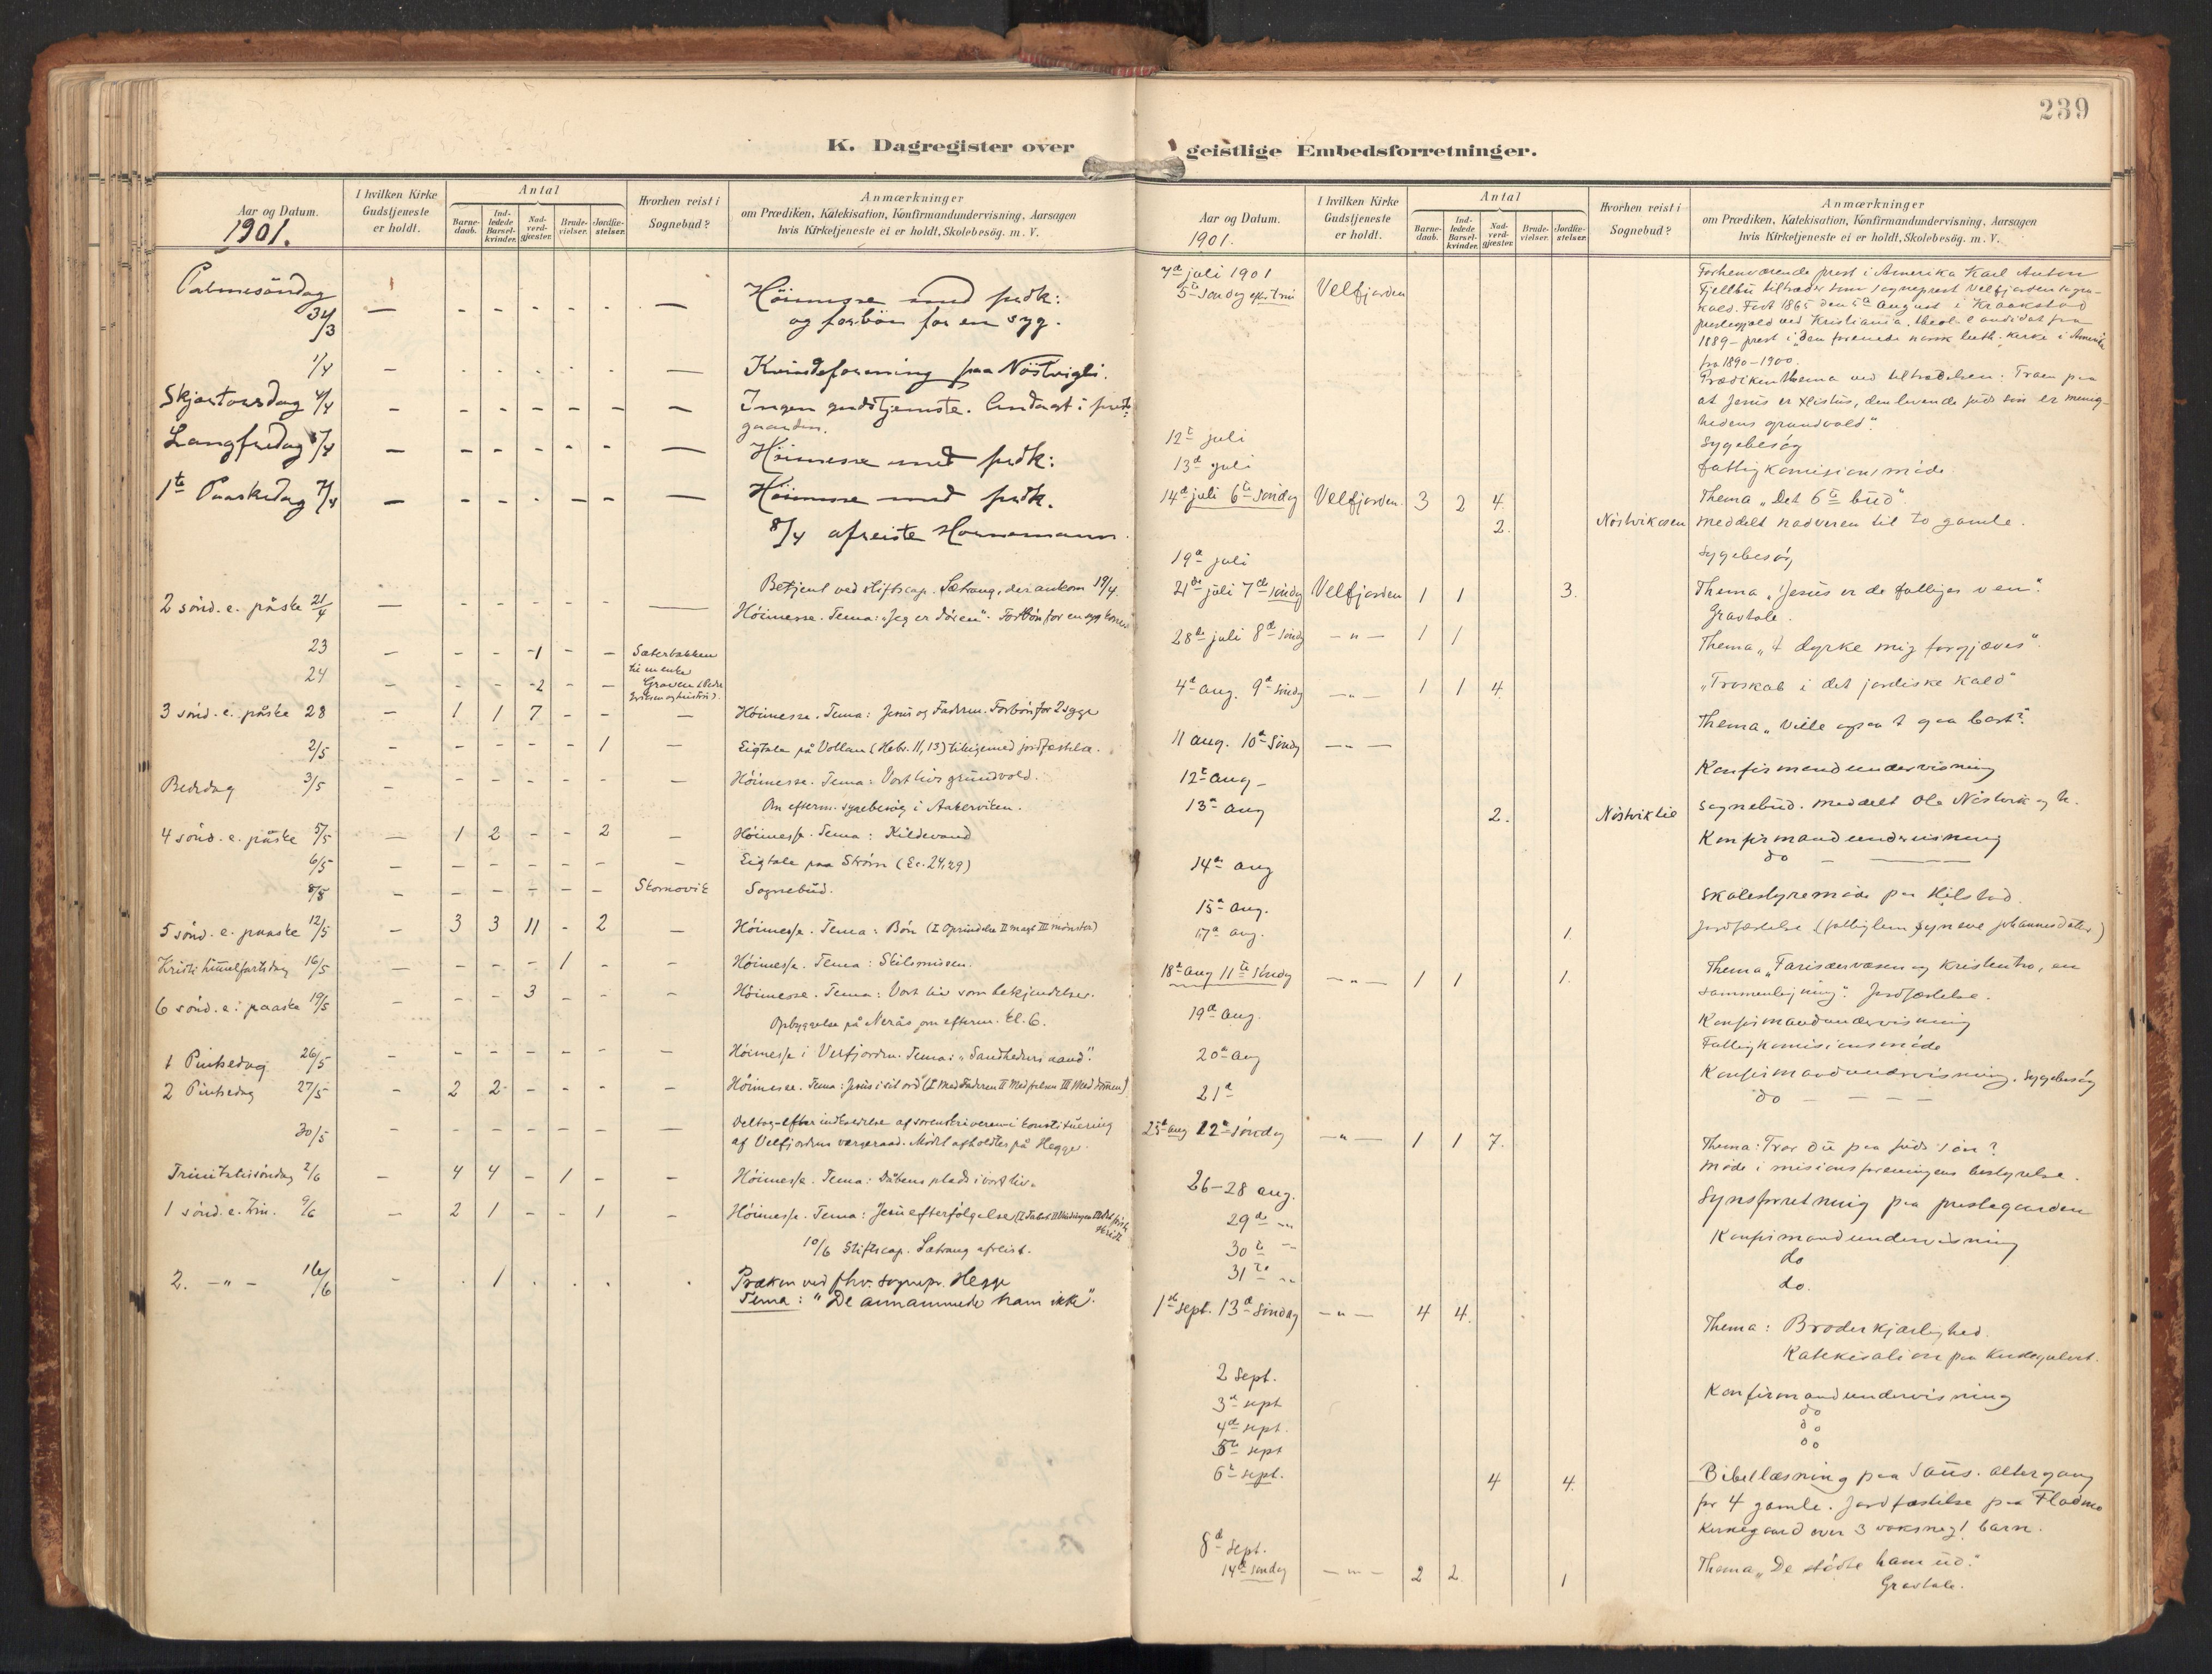 239
K. Dagregister over geistlige Embedsforretninger.
Aar og Datum. 1901.
I hvilken Kirke Gudstjeneste er holdt.
Antal
Barnedaab.
Indledede Barselkvinder.
Nadverdgjæster.
Brudevielser.
Jordfæstelser.
Hvorhen reist i Sognebud?
Anmærkninger
om Prædiken, Katekisation, Konfirmandundervisning, Aarsagen
hvis Kirketjeneste ei er holdt, Skolebesøg. m. V.
Palmesöndag 31/3 — - - - - - — Höimesse med prædk:
og forbön for en syg.
1/4 — - - - - - — Kvindeforening paa Nöstvigli.
Skjærtorsdag 4/4 — - - - - - — Ingen gudstjeneste. Andagt i præste-
gaarden.
Langfredag 5/4 — - - - - - — Höimesse med prædk:
1te Paaskedag 7/4 — - - - - - — Höimesse med prædk.
8/4 afreiste Hornemann.
Betjent ved stiftscap. Sætrang, der ankom 19/4.
2 sønd. e. påske 21/4 — - - - - - — Høimesse. Tema: "Jeg er døren". Forbøn for en syg kone
23 — - - 1 - - Sæterbakken
til en enke
24 — - - 2 - - Graven
3 sønd. e. påske 28 - 1 1 7 - - — Høimesse. Tema: Jesus og Faderen. Forbøn for 2 syge
2/5 - - - - - 1 — Ligtale på Vollan (Hebr. 11, 13) tilligemed jordfæstelse.
Bededag 3/5 - - - - - - — Høimesse. Tema: Vort livs grundvold.
Om efterm. sygebesøg i Aakerviken.
4 sønd. e. påske 5/5 — 1 2 - - 2 - Høimesse. Tema: Kildevand
6/5 — - - - - - - Ligtale paa Strøm
8/5 - - - - - - Stornovik Sognebud.
5 sønd. e. paaske 12/5 - 3 3 11 - 2 — Høimesse. Tema: Bøn (I Oprindelse II magt III mønster)
Kristi himmelfartsdag 16/5 — - - - 1 - - Høimesse. Tema: Skilsmissen.
6 sønd. e. paaske 19/5 - - - 3 - - - Høimesse. Tema: Vort liv som bekjendelse.
Opbyggelse på Nerås om efterm. kl. 6.
1 Pintsedag 26/5 - - - - - - - Høimesse i Velfjorden. Tema: "Sandhedens aand".
2 Pintsedag 27/5 - 2 2 - - - - Høimesse. Tema: Jesus i sit ord (I Med Faderen II Med frelsen III Med dommen)
30/5 - - - - - - — Deltog efter indbydelse af sorenskriveren i konstituering
af Velfjordens værgeraad. Mødet afholdtes på Hegge.
Trinitatissöndag 2/6 - 4 4 - 1 - - Høimesse. Tema: Dåbens plads i vort liv.
1 sønd. e. Trin. 9/6 - 2 1 - - 1 - Høimesse. Tema: Jesu efterfølgelse
10/6 Stiftscap. Sætrang afreist.
2. - " - 16/6 - . 1 . . . . Præken ved fhv. sognepr. Hegge
Tema: "De annammede ham ikke".
Aar og Datum. 1901.
I hvilken Kirke Gudstjeneste er holdt.
Antal
Barnedaab.
Indledede Barselkvinder.
Nadverdgjæster.
Brudevielser.
Jordfæstelser.
Hvorhen reist i Sognebud?
Anmærkninger
om Prædiken, Katekisation, Konfirmandundervisning, Aarsagen
hvis Kirketjeneste ei er holdt, Skolebesøg. m. V.
7de juli 1901
5te søndag efter trin Velfjorden
Forhenværende prest i Amerika Karl Anton
Fjellbu tiltræder som sogneprest Velfjorden sogne-
kald. Født 1865 den 5te August i Kraakstad
prestegjæld ved Kristiania. theol. Candidat fra
1889 – prest i den forenede norsk luth. kirke i Amerika
fra 1890 – 1900.
Prædikenthema ved tiltrædelsen: Troen paa
at Jesus er Xristus, den levende guds søn er menig-
hedens grundvold".
12te juli Sygebesøg
13de juli fattigkomisionsmøde
14de juli 6te søndag Velfjorden. 3 2 4. Thema "Det 6te bud".
2. Nøstvikosen meddelt nadveren til to gamle.
19de juli Sygebesøg
21de juli 7de søndag Velfjorden 1 1 3. Thema "Jesus er de fattiges ven".
Gravtale.
28de juli 8de søndag — " — 1 1 Thema "I dyrke mig forgjæves".
4de aug. 9de søndag — " — 1 1 4 "Troskab i det jordiske kald"
11 aug. 10de søndag — " — Thema "Ville ogsaa I gaa bort?"
12te aug - Konfirmandundervisning
13de aug 2. Nøstviklie Sognebud. meddelt Ole Nøstvik og h.
Konfirmandundervisning
14de aug do — ———
15de aug. Skolestyremøde paa Hilstad.
17de aug. 1. Jordfæstelse (fattiglem Synøve Johannesdatter)
18de aug 11te søndag — " — 1 1 1. Thema "Farisæervæsen og kristentro, en
sammenligning". Jordfæstelse.
19de aug. Konfirmandundervisning
20de aug Fattigkomisionsmøde
21de Konfirmandundervisning. Sygebesøg
do — — — —
25de aug 12te søndag — " — 1 1 7. Thema: Tror du paa guds søn?
Møde i misionsforeningens bestyrelse.
26–28 aug. Synsforretning paa prestegaarden
29de " Konfirmandundervisning
30te " do
31te " do.
1ste sept. 13de søndag — " — 4 4. Thema: Broderkjærlighed.
Katekisation paa kirkegulvet.
2 Sept. Konfirmandundervisning
3de sept do
4de sept. do
5te sept do
6te sept. 4 4. Bibellæsning paa Saus. altergang
for 4 gamle. Jordfæstelse paa Fladmo
kirkegaard over 3 voksne og 1 barn.
8de sept.
14de søndag — " — 2 2. 1 Thema "De stødte ham ud."
Gravtale.